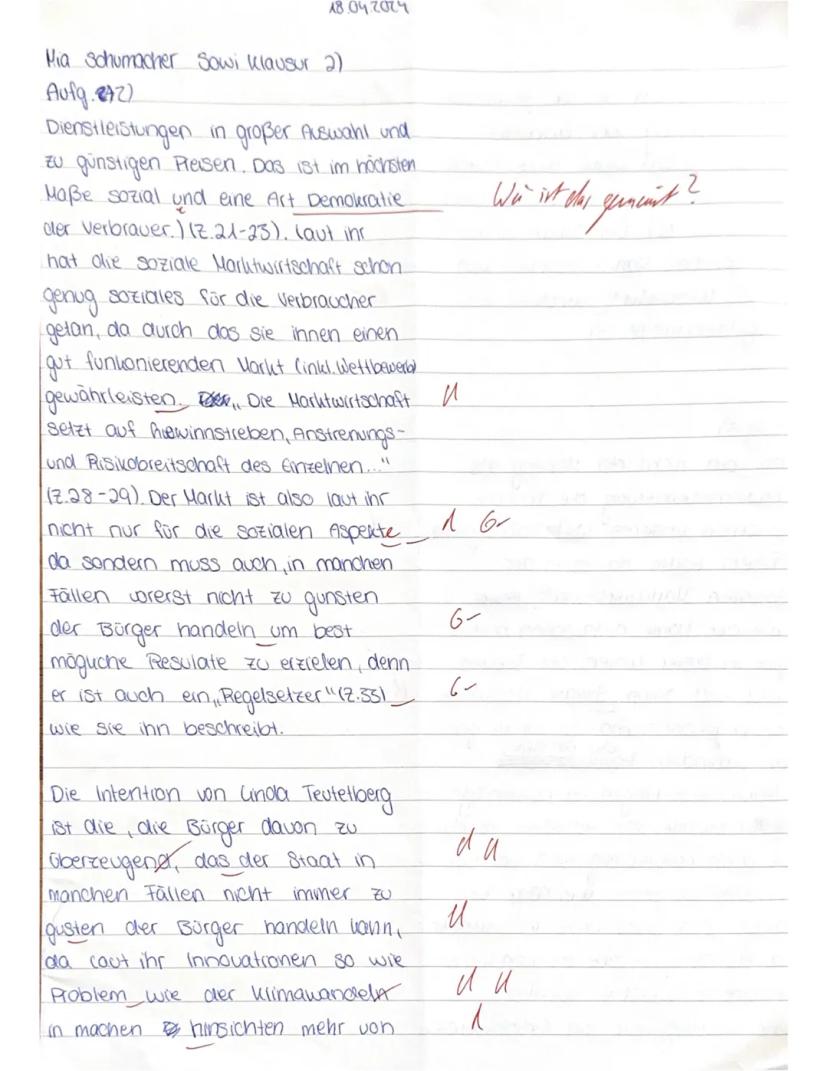 18.04.2024
Mia Schumacher Sowi Klausur 2)
Aufg. 2)
Dienstleistungen in großer Auswahl und
zu günstigen Preisen. Das ist im höchsten
Maße sozial und eine Art Demokratie Wie ist das gemeint?
der Verbraucher.) (Z.21-23). Laut ihr
hat die soziale Marktwirtschaft schon
genug soziales für die Verbraucher
getan, da durch das sie ihnen einen
gut funkonierenden Markt (inkl. Wettbewerb)
gewährleisten. „Die Marktwirtschaft
setzt auf Gewinnstreben, Anstrenungs-
und Risikobreitschaft des Einzelnen..."
(Z.28-29). Der Markt ist also laut ihr
nicht nur für die sozialen Aspekte G-
da sondern muss auch, in manchen
Fällen vorerst nicht zu gunsten
der Bürger handeln um best G-
mögliche Resulate zu erzielen, denn
er ist auch ein „Regelsetzer" (Z.33) G-
wie sie ihn beschreibt.
Die Intention von Linda Teutelberg
ist die, die Bürger davon zu
überzeugend, das der Staat in
manchen Fällen nicht immer zu
gusten der Bürger handeln kann,
da laut ihr Innovationen so wie
Problem wie der Klimawandeln
in machen hinsichten mehr von